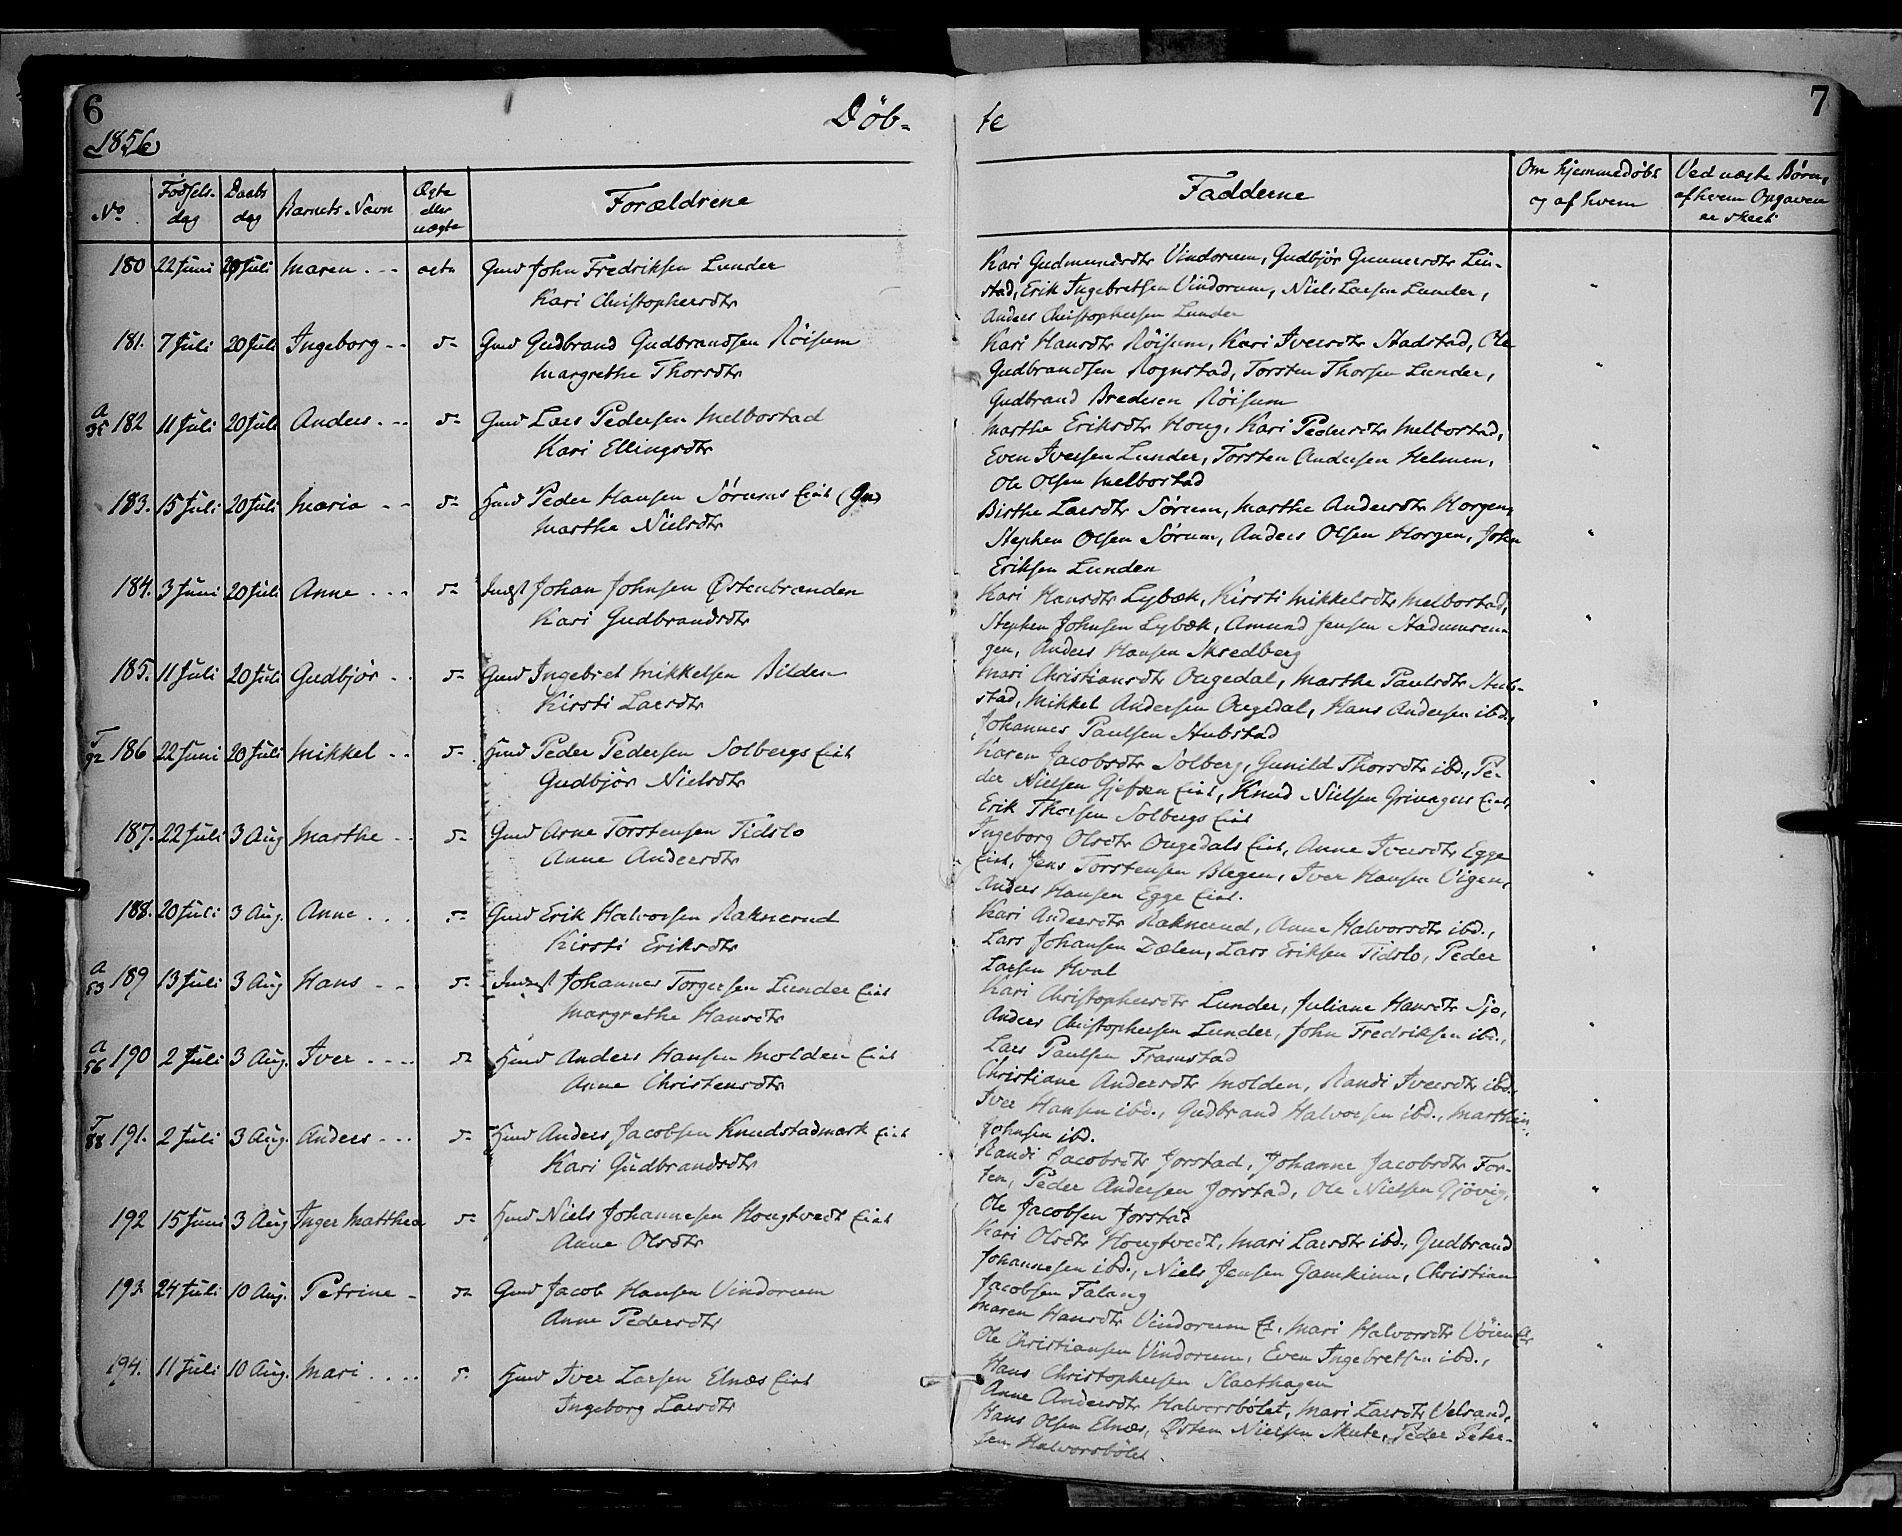 6
1856
Døb-
te
7
No
Fødsels-
dag
Daabs
dag
Barnets Navn
Ægte
eller
uægte
Forældrene
Fadderne
Om hjemmedøbt
og af hvem
Ved uægte Børn,
af hvem Opgaven
er skeet
180 22 Juni 20 Juli Maren ægte Gmd John Fredriksen Lunder
Kari Christophersdtr
Kari Gudmundsdtr Vindorum, Gudbjør Gunnersdtr Lin-
stad, Erik Ingebretsen Vindorum, Niels Larsen Lunder,
Anders Christophersen Lunder
181. 7 Juli 20 Juli Ingeborg Gmd Gudbrand Gudbrandsen Røisum
Margrethe Thorsdtr
Kari Hansdtr Røisum, Kari Iversdtr Stadstad, Ole
Gudbrandsen Rognstad, Torsten Thorsen Lunder,
Gudbrand Bredesen Røisum
A
35 182 11 Juli 20 Juli Anders Gmd Lars Pedersen Melbostad
Kari Ellingsdtr
Marthe Eriksdtr Houg, Kari Pedersdtr Melbostad,
Even Iversen Lunder, Torsten Andersen Helmen,
Ole Olsen Melbostad
183. 15 Juli 20 Juli Maria Hmd Peder Hansen Sørums Eiet (Gm)
Marthe Nielsdtr
Birthe Larsdtr Sørum, Marthe Andersdtr Horgen,
Stephen Olsen Sørum, Anders Olsen Horgen, John
Eriksen Lunden
184. 3 Juni 20 Juli Anne Indst Johan Johnsen Østenbrænden
Kari Gudbrandsdtr
Kari Hansdtr Lybæk, Kirsti Mikkelsdtr Melbostad,
Stephen Johnsen Lybæk, Amund Jensen
gen, Anders Hansen Skredberg
185. 11 Juli 20 Juli Gudbjør Gmd Ingebret Mikkelsen Bilden
Kirsti Larsdtr
Mari Christiansdtr Ougedal, Marthe Paulsdtr Stub-
stad, Mikkel Andersen Ougedal, Hans Andersen ibd.,
Johannes Paulsen Stubstad
T
92 186 22 Juni 20 Juli Mikkel Hmd Peder Pedersen Solbergs Eiet
Gudbjør Nielsdtr
Karen Jacobsdtr Solberg, Gunild Thorsdtr ibd., Pe-
der Nielsen Eiet, Knud Nielsen Eiet,
Erik Solbergs Eiet
187. 22 Juli 3 Aug Marthe Gmd Arne Torstensen Tidslo
Anne Andersdtr
Ingeborg Olsdtr Ougedals Eiet, Anne Iversdtr Egge
Eiet, Jens Torstensen Blegen, Iver Hansen Vigen,
Anders Hansen Egge Eiet.
188. 20 Juli 3 Aug. Anne Gmd Erik Halvorsen Raknerud
Kirsti Eriksdtr
Kari Andersdtr Raknerud, Anne Halvorsdtr ibd.,
Lars Johansen Dælen, Lars Eriksen Tidslo, Peder
Larsen Hval
A
53 189 13 Juli 3 Aug Hans Indst Johannes Torgersen Lunder Eiet
Margrethe Hansdtr
Kari Christophersdtr Lunder, Juliane Hansdtr Sjo,
Anders Christophersen Lunder, John Fredriksen ibd.,
Lars Paulsen Framstad
A
56 190 2 Juli 3 Aug. Iver Hmd Anders Hansen Molden Eiet
Anne Christensdtr
Christiane Andersdtr Molden, Randi Iversdtr ibd.
Iver Hansen ibd., Gudbrand Halvorsen ibd., Marthin
Johnsen ibd.
T
88 191. 2 Juli 3 Aug. Anders Hmd Anders Jacobsen Knudstadmark Eiet
Kari Gudbrandsdtr
Randi Jacobsdtr Jorstad, Johanne Jacobsdtr For-
ten, Peder Andersen Jorstad, Ole Nielsen Gjövig,
Ole Jacobsen Jorstad
192 15 Juni 3 Aug Inger Matthea Hmd Niels Johannesen Hougtvedt Eiet
Anne Olsdtr
Kari Olsdtr Hougtvedt, Mari Larsdtr ibd., Gudbrand
Johannesen ibd., Niels Jensen Gamkinn, Christian
Jacobsen Falang
193. 24 Juli 10 Aug. Petrine Gmd Jacob Hansen Vindorum
Anne Pedersdtr
Maren Hansdtr Vindorum E., Mari Halvorsdtr Vöien E
Ole Christiansen Vindorum, Even Ingebretsen ibd.,
Hans Christophersen Slaathagen
194. 11 Juli 10 Aug. Mari Hmd Iver Larsen Elnæs Eiet
Ingeborg Larsdtr
Anne Andersdtr Halvorsbölet, Mari Larsdtr Velsand,
Hans Olsen Elnæs, Østen Nielsen Skute, Peder Peter-
sen Halvorsbölet